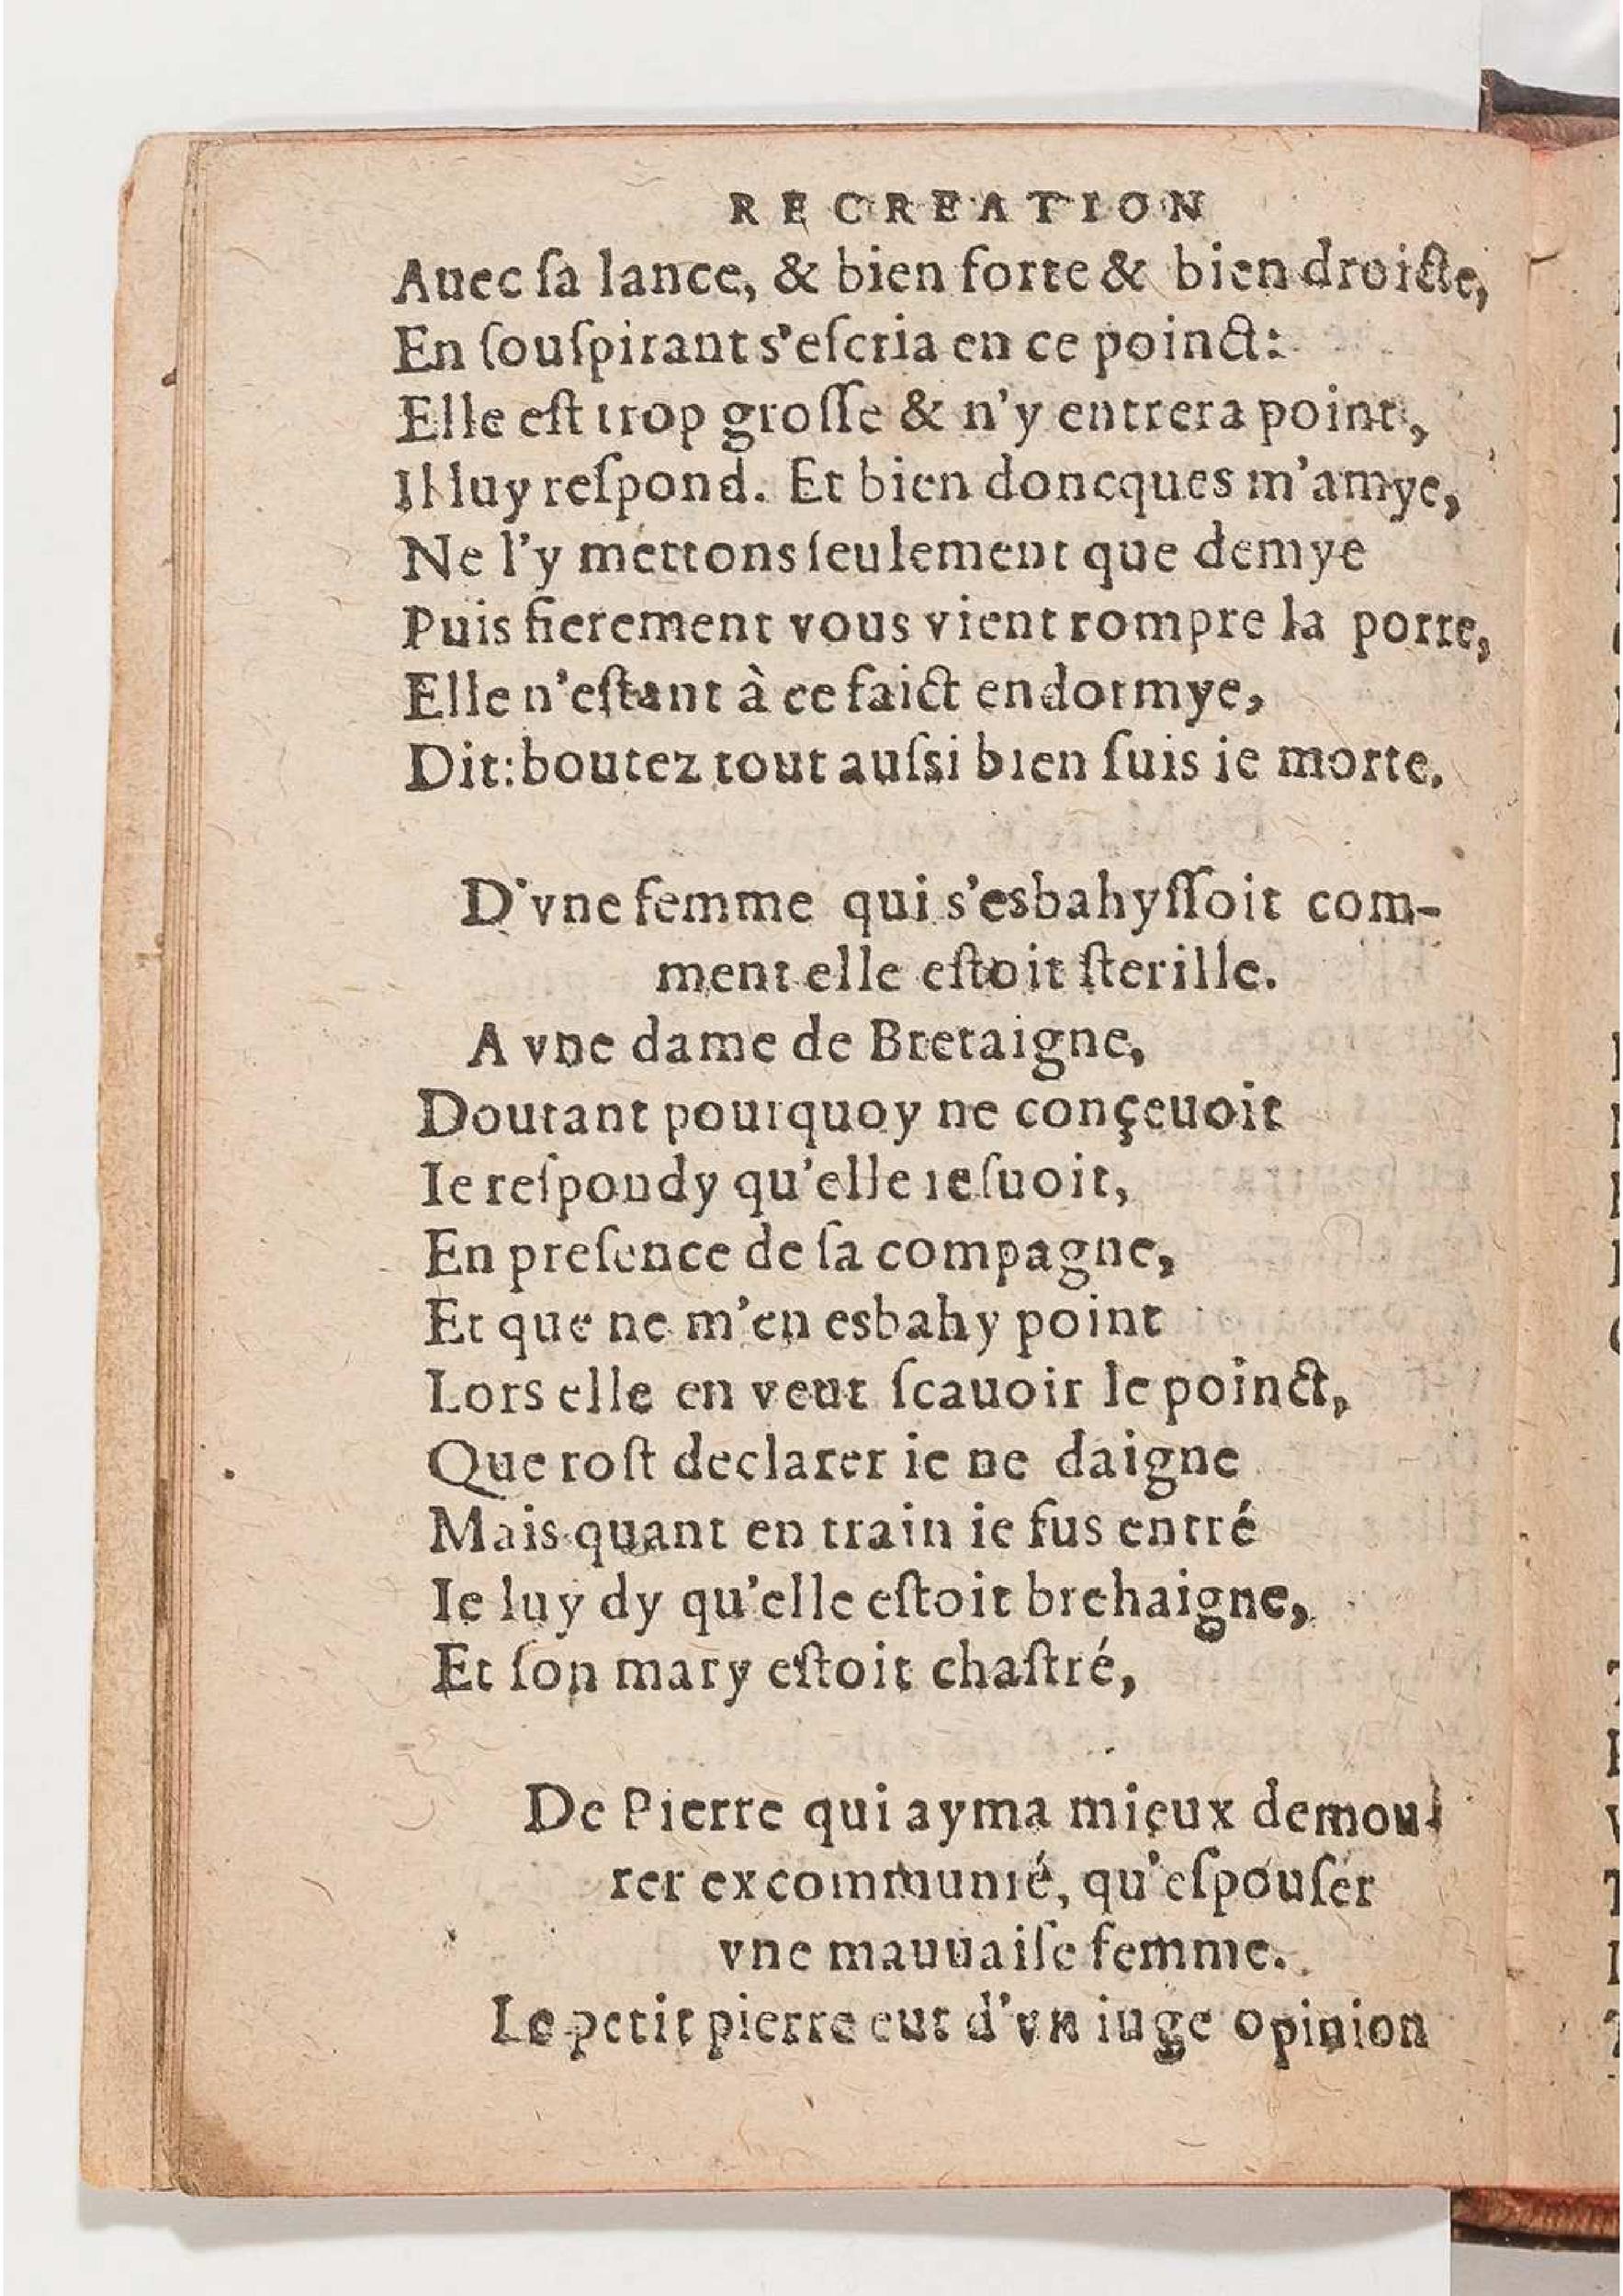 RECREATION
Auec ſa lance, & bien forte & bien droicte,
En ſouſpirant s'eſcria en ce poinct:
Elle eſt trop groſſe & n'y entrera point,
Il luy reſpond. Et bien doncques m'amye,
Ne l'y mettons ſeulement que demye
Puis fierement vous vient rompre la porte,
Elle n'eſtant à ce faict endormye,
Dit: boutez tout auſsi bien ſuis ie morte.
D'vne femme qui s'esbahyſſoit com-
ment elle eſtoit ſterille.
A vne dame de Bretaigne,
Doutant pourquoy ne conçeuoit
Ie reſpondy qu'elle reſuoit,
En preſence de ſa compagne,
Et que ne m'en esbahy point
Lors elle en veut ſcauoir le poinct,
Que toſt declarer ie ne daigne
Mais quant en train ie fus entré
Ie luy dy qu'elle eſtoit brehaigne,
Et ſon mary eſtoit chaſtré,
De Pierre qui ayma mieux demou-
rer excommunié, qu'eſpouſer
vne mauuaiſe femme.
Le petit pierre eut d'vn iuge opinion